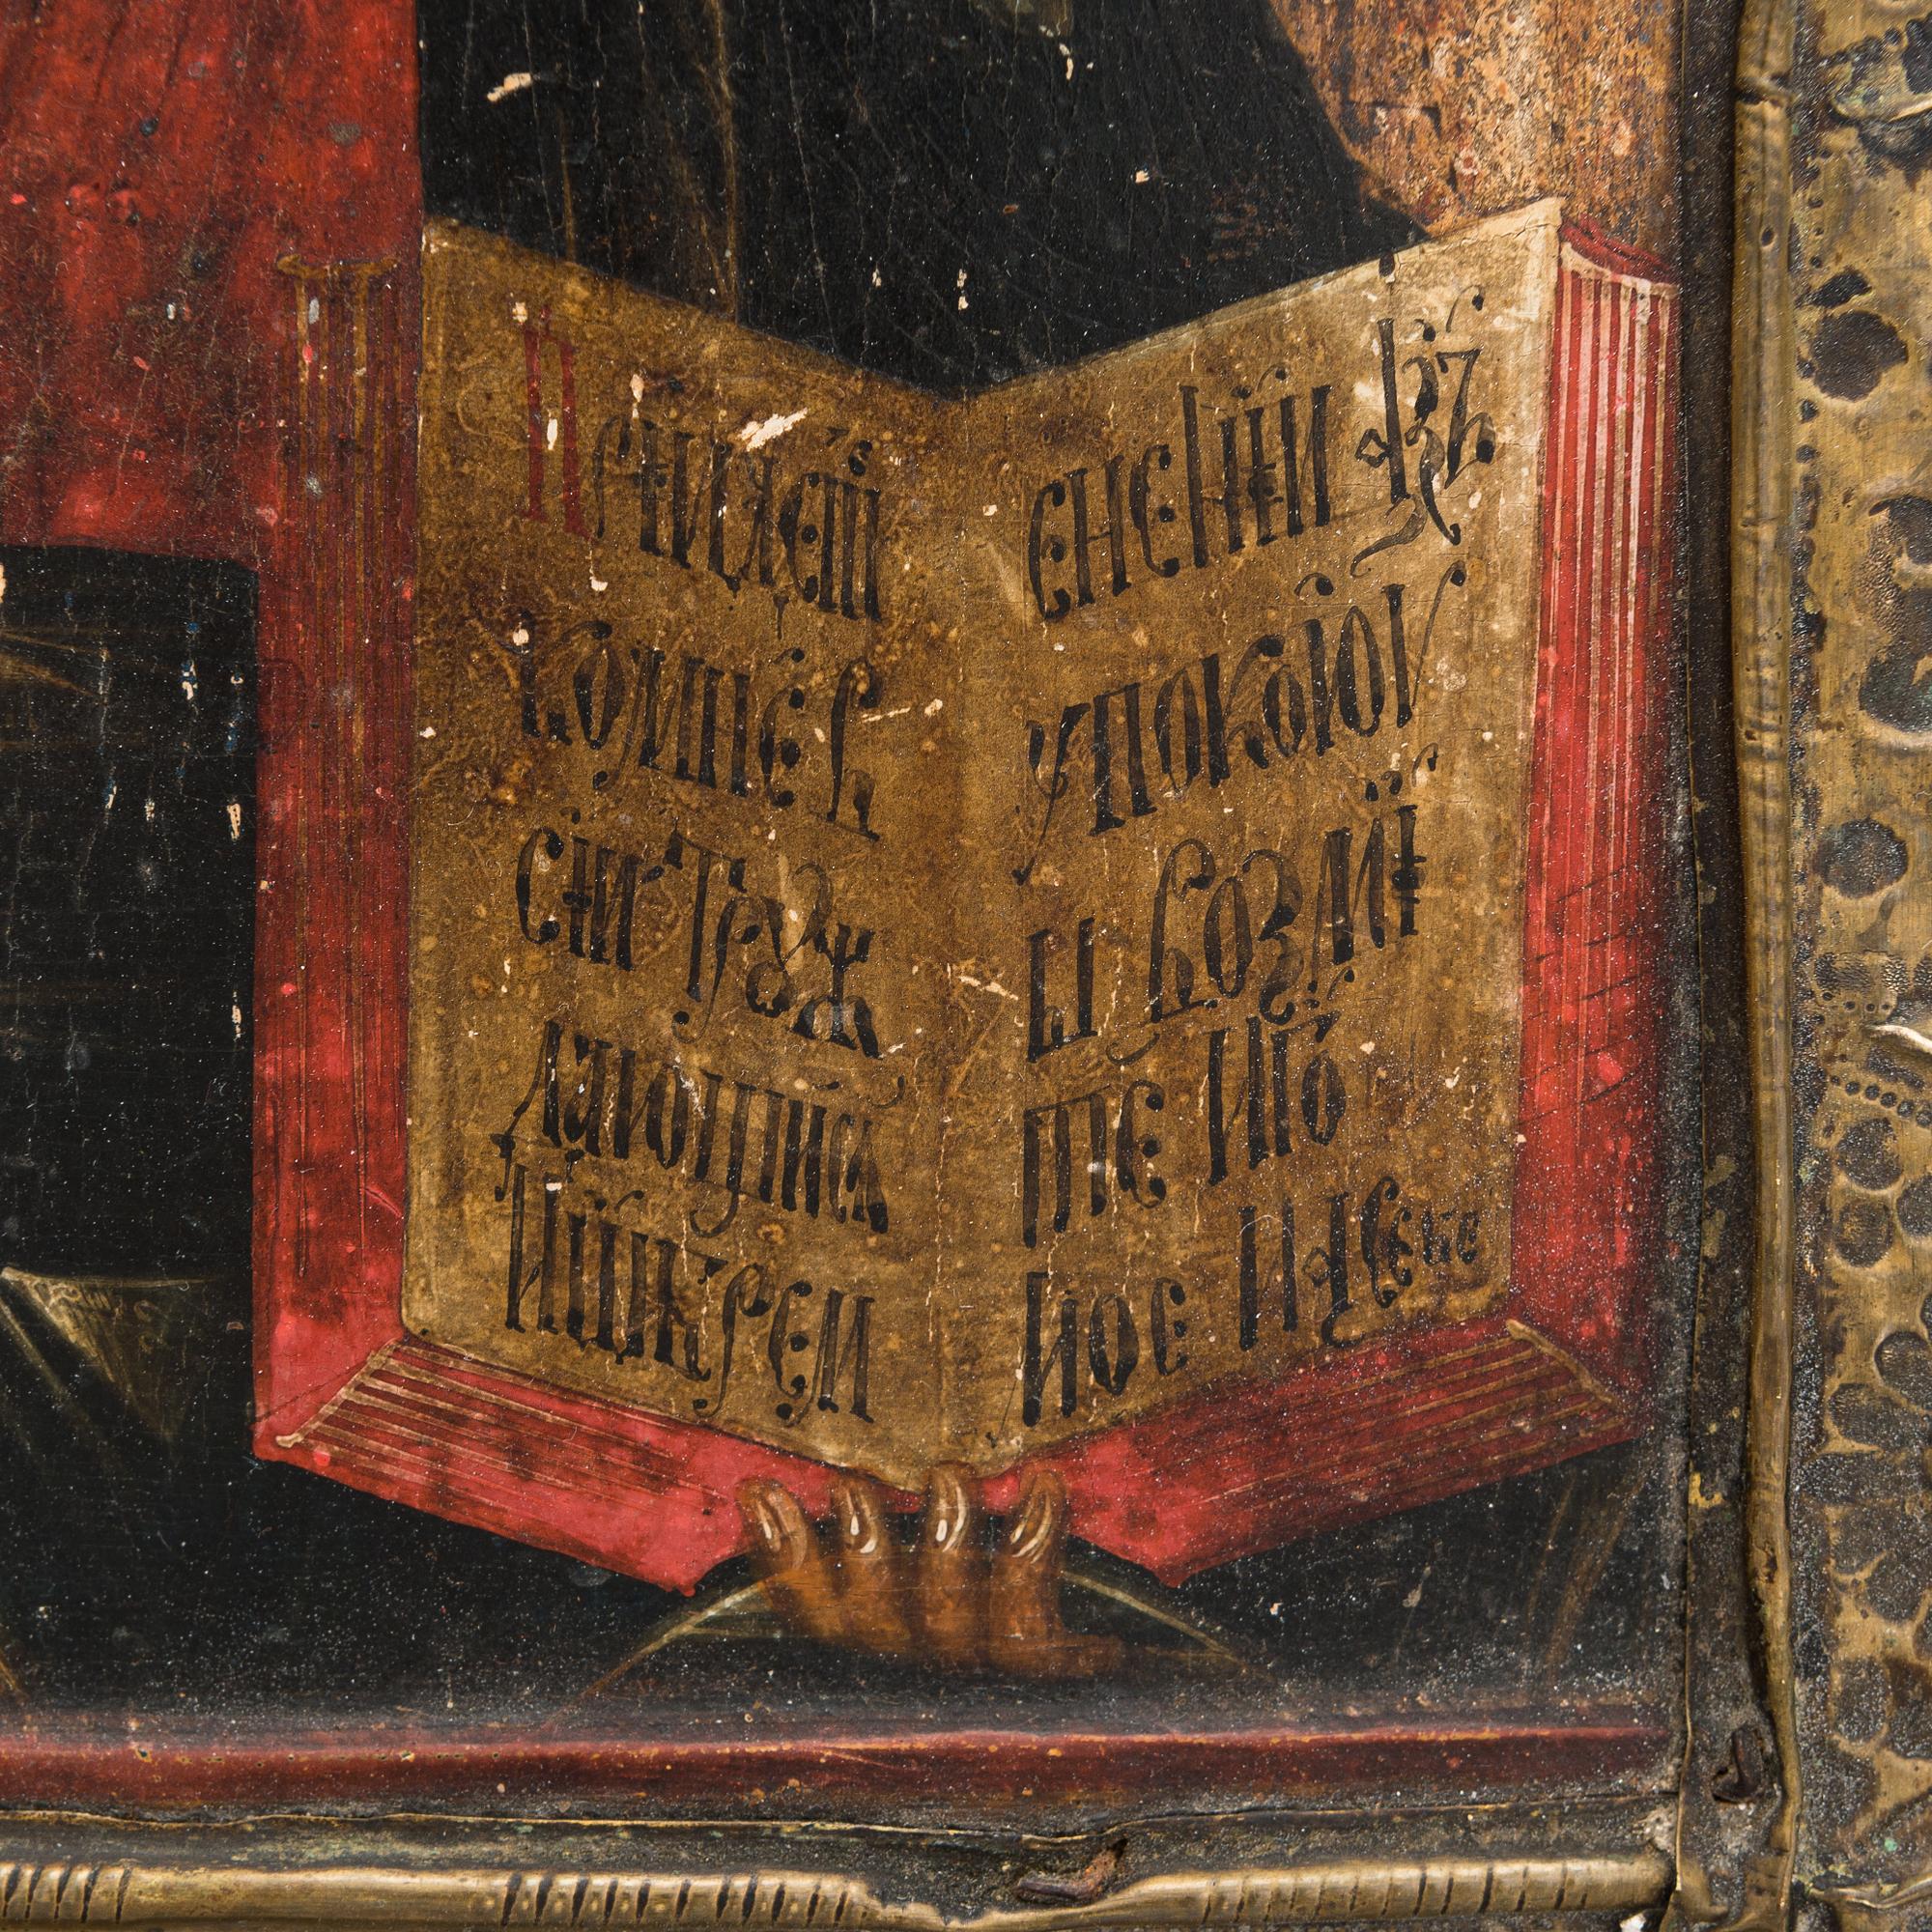 Прїидете
ко мне в
сїи труж
дающїйсѧ
и ѡбрем
ененнїи азъ
упокою в
ы возмї
те иго
мое на себе